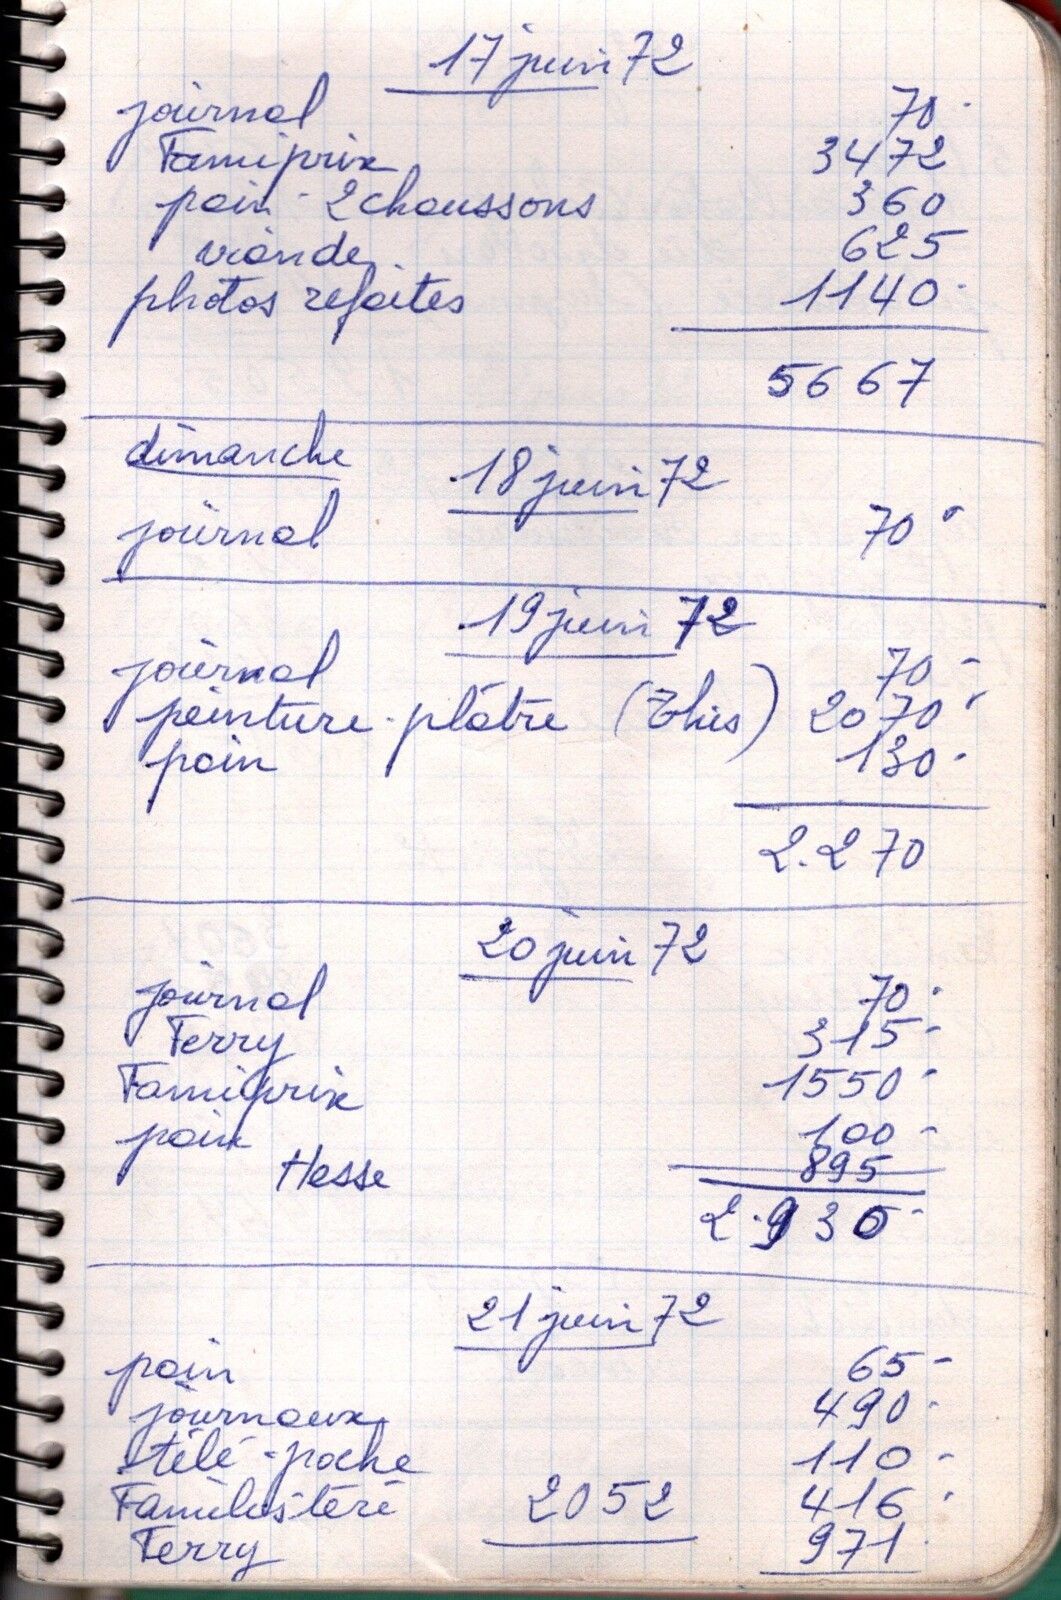 17 juin 72
journal 70
Famiprix 3472
pain - 2 chaussons 360
viande 625
photos refaites 1140
5667
dimanche 18 juin 72
journal 70
19 juin 72
journal 70 -
peinture - plâtre (This) 2070
pain 130 -
2.270
20 juin 72
journal 70 -
Ferry 315 -
Famiprix 1550 -
pain 100 -
Hesse 895
2.930 -
21 juin 72
pain 65 -
journaux 490 -
télé-poche 110 -
Familistère 2052 416 -
Ferry 971